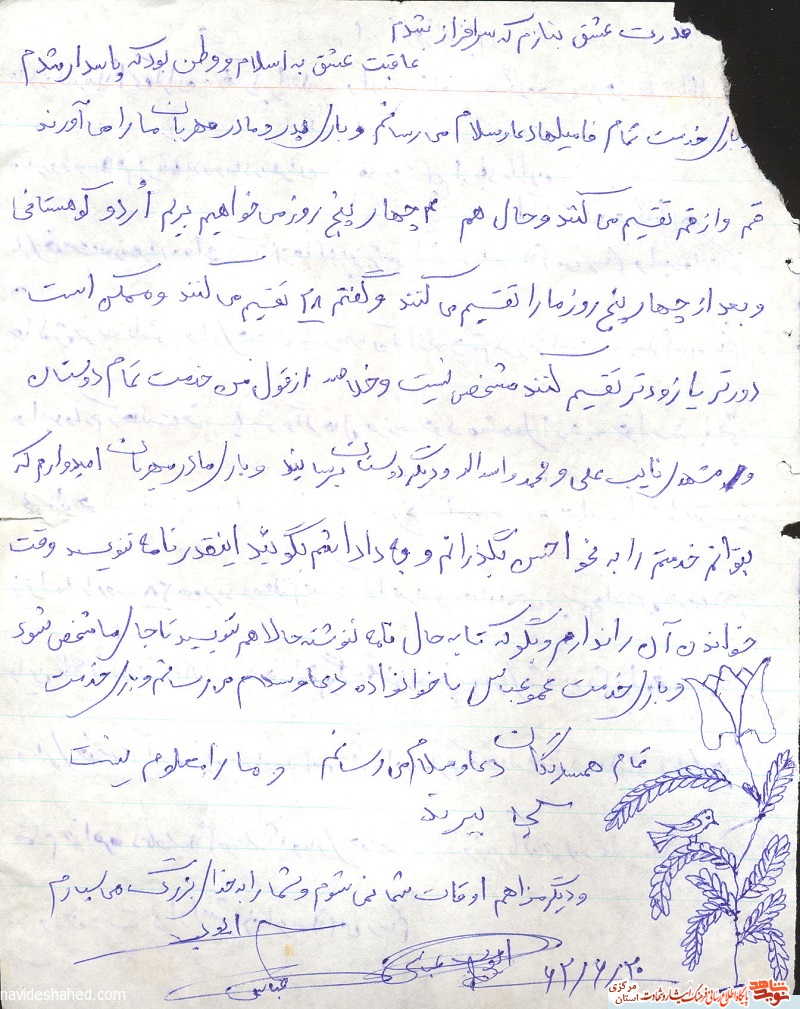 قدرت عشق بنازم که سرافراز شدم
عاقبت عشق به اسلام و وطن بود که پاسدار شدم
و باری خدمت تمام فامیلها دعا و سلام می رسانم و باری پدر و مادر مهربان ما را می آورند
قم و از قم تقسیم می کنند و حال هم ۴ چهار پنج روز می خواهیم بریم اُردو کوهستانی
و بعد از چهار پنج روز ما را تقسیم می کنند و گفتم ۲۸ تقسیم می کنند و ممکن است
دورتر یا زودتر تقسیم کنند مشخص نیست و خلاصه از قول من خدمت تمام دوستان
نایب علی و محمد و اسداله و دیگر دوستان برسانید و باری مادر مهربان امیدوارم که
بتوانم خدمتم را به نحو احسن بگذرانم و به داداشم بگوئید اینقدر نامه ننویسد وقت
خواندن آن را ندارم و بگو که تا به حال نامه ننوشته حالا هم ننویسد تا جای ما مشخص شود
و باری خدمت عمو عباس با خانواده دعا و سلام می رسانم و باری خدمت
تمام همسایگان دعا و سلام می رسانم و ما را معلوم نیست
کجا ببرند
و دیگر مزاهم اوقات شما نمی شوم و شما را به خدای بزرگ می سپارم
ایوب عباسی
۶۲/۶/۲۰
عباسی
navideshahed.com
نوید شاهد
پایگاه اطلاع رسانی فرهنگ ایثار و شهادت استان مرکزی